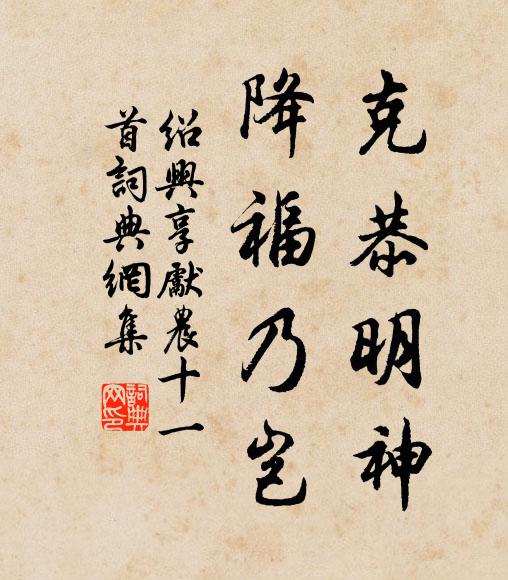 克恭明神
降福乃岂
紹興享獻農十一
首詞典網集
詞典
网印